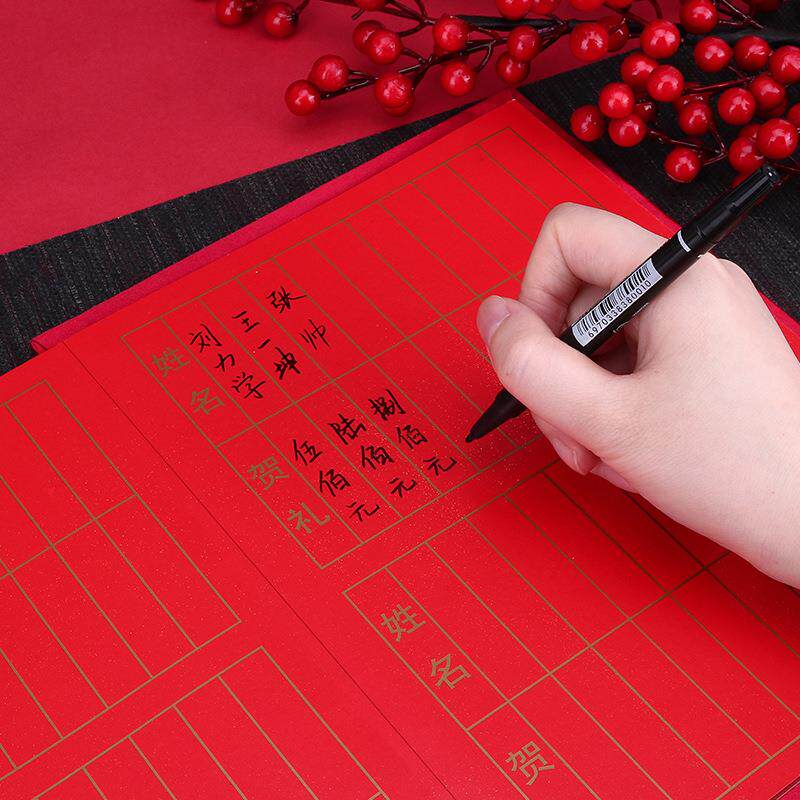 姓名
刘力学
王一坤
张帅
贺礼
伍佰元
陆佰元
捌佰元
6970338360010
姓名
贺